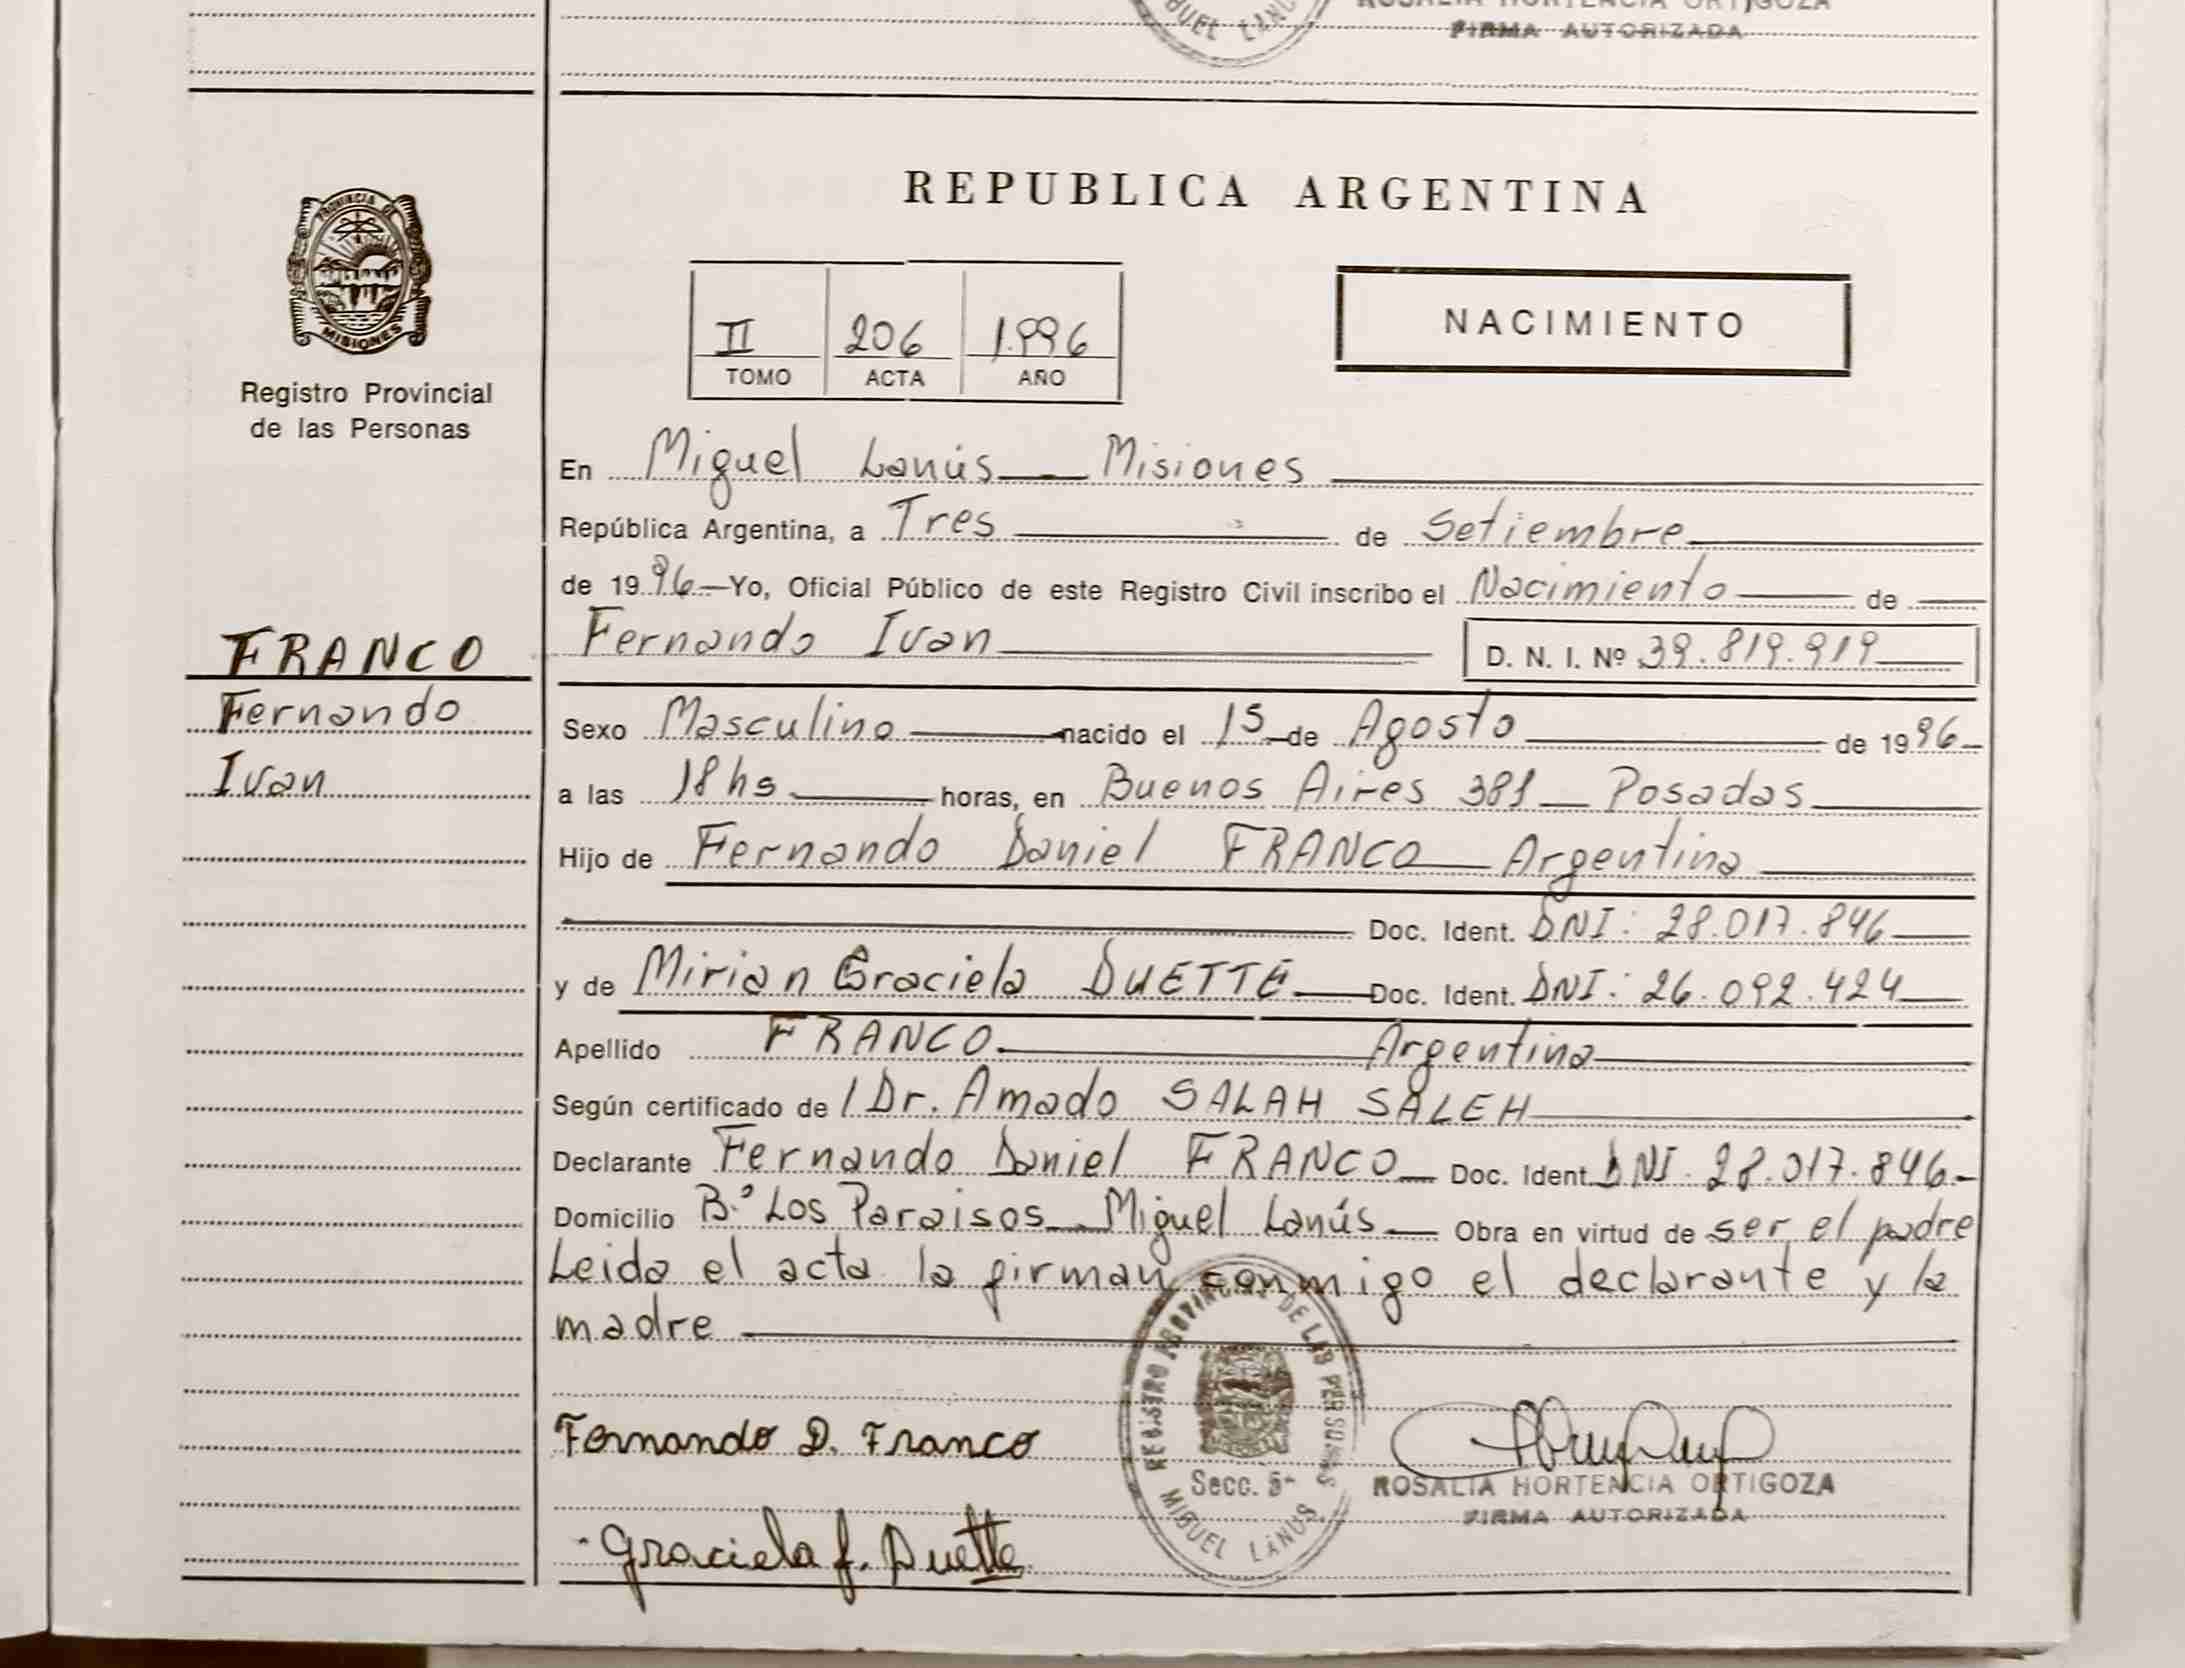 ROSALIA HORTENCIA ORTIGOZA
FIRMA AUTORIZADA
MIGUEL LANUS
PROVINCIA DE
MISIONES
Registro Provincial
de las Personas
REPUBLICA ARGENTINA
II 206 1.996
TOMO ACTA AÑO
NACIMIENTO
En Miguel Lanús Misiones
República Argentina, a Tres de Setiembre
de 1996 Yo, Oficial Público de este Registro Civil inscribo el Nacimiento de
FRANCO
Fernando
Ivan
Fernando Ivan D. N. I. Nº 39.819.919
Sexo Masculino nacido el 15 de Agosto de 1996
a las 18 hs horas, en Buenos Aires 381 Posadas
Hijo de Fernando Daniel FRANCO Argentina
Doc. Ident. DNI: 28.017.846
y de Mirian Graciela DUETTE Doc. Ident. DNI: 26.092.424
Apellido FRANCO Argentina
Según certificado de / Dr. Amado SALAH SALEH
Declarante Fernando Daniel FRANCO Doc. Ident. DNI. 28.017.846
Domicilio Bº Los Paraisos Miguel Lanús Obra en virtud de ser el padre
Leida el acta la firman conmigo el declarante y la
madre
Fernando D. Franco
Graciela f. Duette
REGISTRO PROVINCIAL DE LAS PERSONAS
Secc. 5ª
MIGUEL LANUS
ROSALIA HORTENCIA ORTIGOZA
FIRMA AUTORIZADA